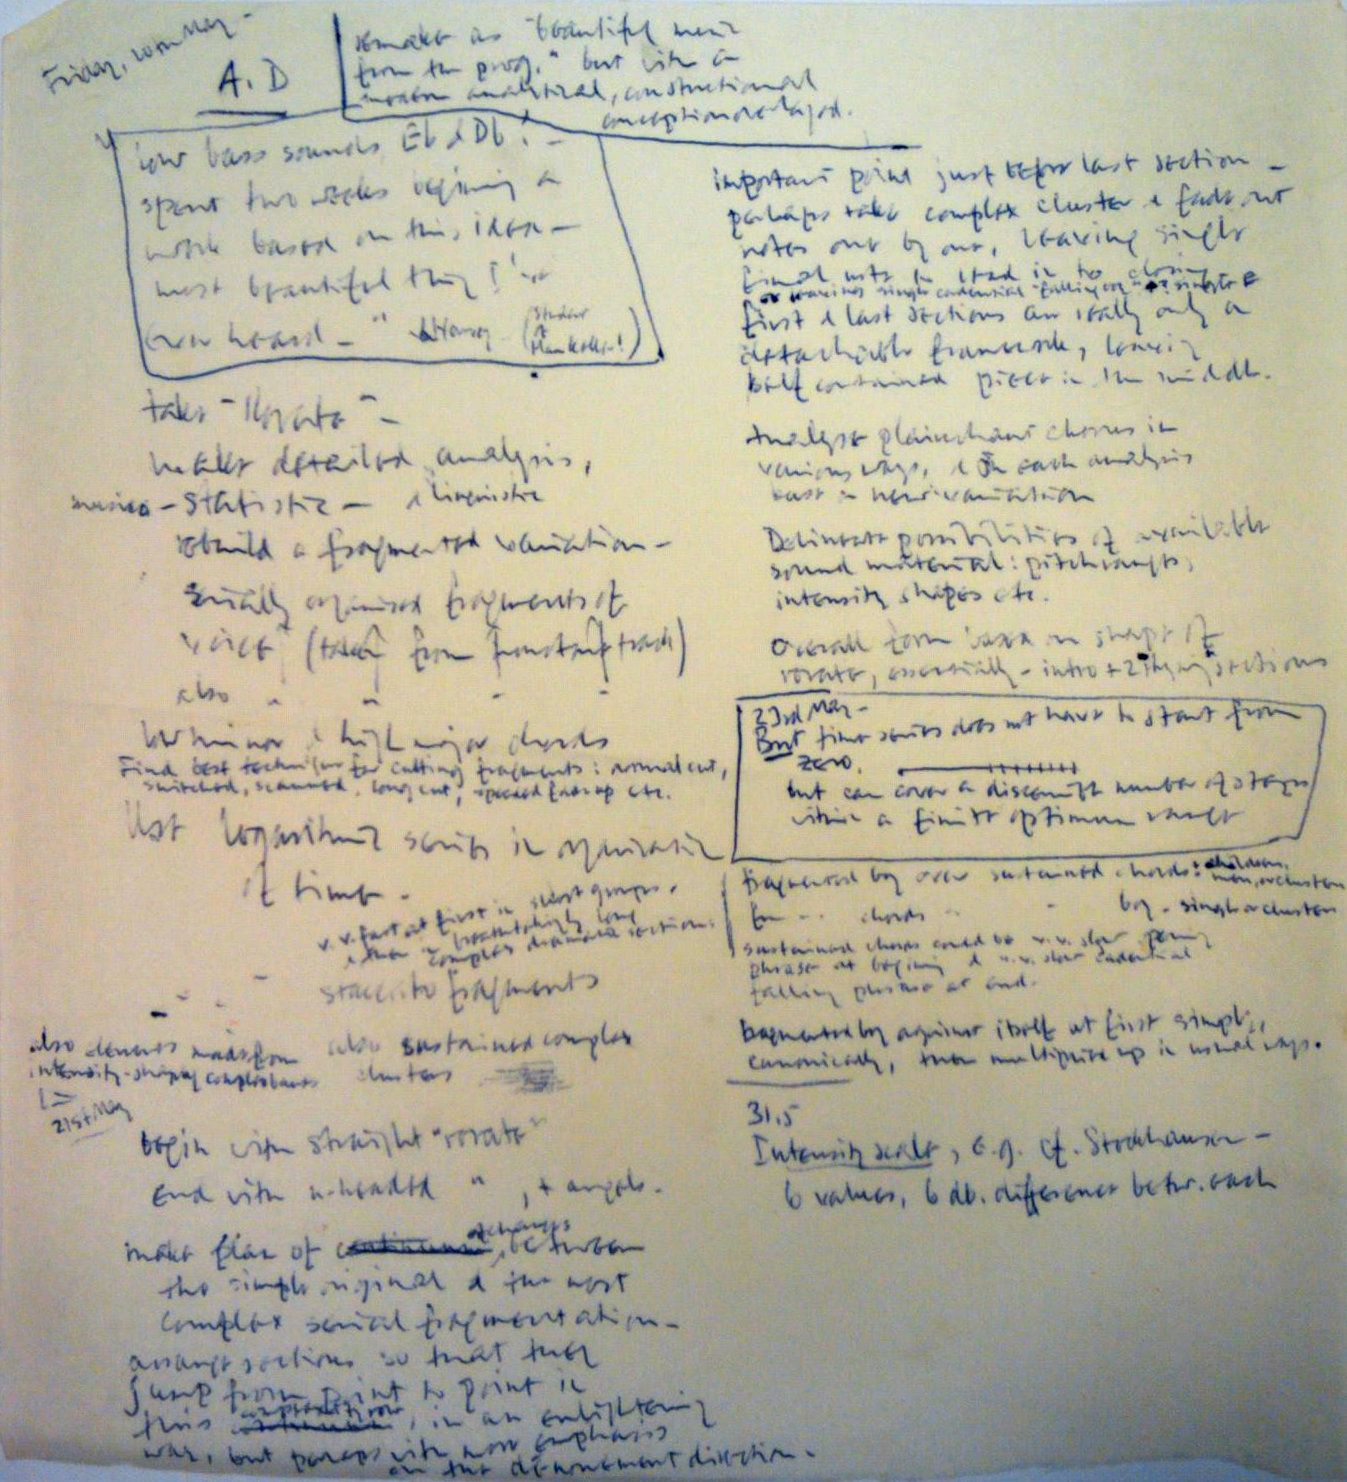 Friday, 10th May -
A.D
remake as "beautiful music
from the prog." but with a
modern analytical, constructional
conception overlayed.
low bass sounds Eb & Db! -
spent two weeks begining a
work based on this idea -
most beautiful thing I've
ever heard - "
(student
of
!)
take "Rorate" -
make detailed analysis,
musico - statistic - & linguistic
rebuild a fragmented variation -
serially organised fragments of
voice (taken from track)
also " " " "
low minor & high major chords
Find best technique for cutting fragments: normal cut,
switched, scanned, long cut, speeded fade up etc.
Use logarithmic series in organisation
of time -
v.v. fast at first in short groups,
& then breathtakingly long
complex dramatic sections.
staccato fragments
also elements made from
intensity-shaping complex
21st May
also sustained complex
clusters
begin with straight "rorate"
end with " , + angels.
make plan of of changes, between
the simple original & the most
complex serial fragmentation -
arrange sections so that they
jump from point to point in
this , in an enlightening
way, but perhaps with more emphasis
on the denouement direction.
important point just before last section -
perhaps take complex cluster & fade out
notes one by one, leaving single
final note to lead in to closing
or leaving single cadential falling
first & last sections are really only a
detachable framework, leaving
self contained piece in the middle.
Analyse plainchant chorus in
various ways, & on each analysis
base a new variation
Delineate possibilities of available
sound material: pitch ranges,
intensity shapes etc.
Overall form based on shape of
rorate, essentially - intro + 2 sections
23rd May -
But time series does not have to start from
zero.
but can cover a discernible number of steps
within a finite optimum range
fragmented boy over sustained chords: children,
men, or clusters
" " chords " " boy - single or clusters
sustained chords could be v.v. slow
phrase at begining & v.v. slow cadential
falling phrase at end.
fragmented boy against itself at first simply,
canonically, then multiplied up in usual ways.
31.5
Intensity scale, e.g. cf. Stockhausen -
6 values, 6 db. difference betw. each